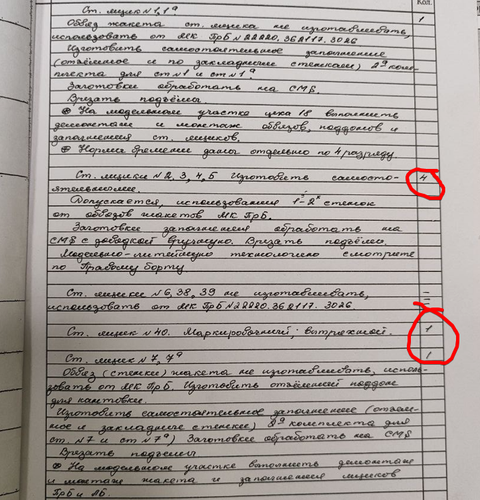 Кол.
Ст. ящик №1,1ª 1
Обвяз жакета ст. ящика не изготавливать,
использовать от МК ПрБ №22220.362117.3026
Изготовить самостоятельное заполнение
(отъёмное и по закладные стенкам) 2ª ком-
плекта для ст №1 и ст №1ª
Заготовки обработать на СМБ.
Врезать подъёмы
На модельном участке цеха 18 выполнить
демонтаж и монтаж обвязов, поддонов и
заполнения ст. ящиков.
Норма времени дана отдельно по 4 разряду.
Ст. ящики №2, 3, 4, 5 Изготовить самосто- 4
ятельными.
Допускается, использования 1-2ˣ стенок
от обвязов жакетов МК ПрБ.
Заготовки заполнения обработать на
СМБ с доводкой вручную. Врезать подъёмы.
Модельно-литейную технологию смотрите
по Правому борту
Ст. ящики №6, 38, 39 не изготавливать,
использовать от МК ПрБ №22220.362117.3026.
Ст. ящик №40. Маркировочный, вытряхной. 1
Ст. ящик №7, 7ª 1
Обвяз (стенки) жакета не изготавливать, исполь-
зовать от МК ПрБ. Изготовить отъёмный поддон
для кантовки.
Изготовить самостоятельное заполнение (отъём-
ное и закладные стенки) 2ª комплекта для
ст. №7 и ст №7ª) Заготовки обработать на СМБ
Врезать подъёмы
На модельном участке выполнить демонтаж
и монтаж жакета и заполнения ящиков
ПрБ и ЛБ.